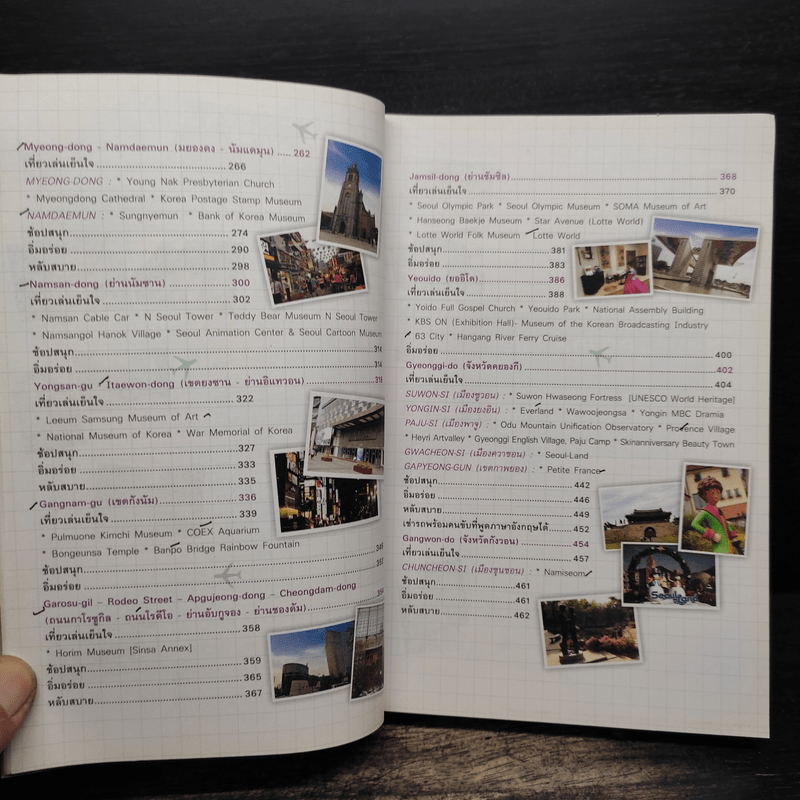 Myeong-dong - Namdaemun (มยองดง - นัมแดมุน) ..... 262
เที่ยวเล่นเย็นใจ .......... 266
MYEONG-DONG : * Young Nak Presbyterian Church
* Myeongdong Cathedral * Korea Postage Stamp Museum
NAMDAEMUN : * Sungnyemun * Bank of Korea Museum
ช้อปสนุก .......... 274
อิ่มอร่อย .......... 290
หลับสบาย .......... 298
Namsan-dong (ย่านนัมซาน) .......... 300
เที่ยวเล่นเย็นใจ .......... 302
* Namsan Cable Car * N Seoul Tower * Teddy Bear Museum N Seoul Tower
* Namsangol Hanok Village * Seoul Animation Center & Seoul Cartoon Museum
ช้อปสนุก .......... 314
อิ่มอร่อย .......... 314
Yongsan-gu - Itaewon-dong (เขตยงซาน - ย่านอิแทวอน) .......... 319
เที่ยวเล่นเย็นใจ .......... 322
* Leeum Samsung Museum of Art
* National Museum of Korea * War Memorial of Korea
ช้อปสนุก .......... 327
อิ่มอร่อย .......... 333
หลับสบาย .......... 335
Gangnam-gu (เขตกังนัม) .......... 336
เที่ยวเล่นเย็นใจ .......... 339
* Pulmuone Kimchi Museum * COEX Aquarium
* Bongeunsa Temple * Banpo Bridge Rainbow Fountain
ช้อปสนุก ..........
อิ่มอร่อย ..........
Garosu-gil – Rodeo Street – Apgujeong-dong – Cheongdam-dong
(ถนนกาโรซูกิล - ถนนโรดีโอ - ย่านอับกูจอง - ย่านชองดัม) ..........
เที่ยวเล่นเย็นใจ .......... 358
* Horim Museum [Sinsa Annex]
ช้อปสนุก .......... 359
อิ่มอร่อย .......... 365
หลับสบาย .......... 367
Jamsil-dong (ย่านชัมซิล) .......... 368
เที่ยวเล่นเย็นใจ .......... 370
* Seoul Olympic Park * Seoul Olympic Museum * SOMA Museum of Art
* Hanseong Baekje Museum * Star Avenue (Lotte World)
* Lotte World Folk Museum * Lotte World
ช้อปสนุก .......... 381
อิ่มอร่อย .......... 383
Yeouido (ยออีโด) .......... 386
เที่ยวเล่นเย็นใจ .......... 388
* Yoido Full Gospel Church * Yeouido Park * National Assembly Building
* KBS ON (Exhibition Hall)- Museum of the Korean Broadcasting Industry
* 63 City * Hangang River Ferry Cruise
อิ่มอร่อย .......... 400
Gyeonggi-do (จังหวัดคยองกี) .......... 402
เที่ยวเล่นเย็นใจ .......... 404
SUWON-SI (เมืองซูวอน) : * Suwon Hwaseong Fortress [UNESCO World Heritage]
YONGIN-SI (เมืองยงอิน) : * Everland * Wawoojeongsa * Yongin MBC Dramia
PAJU-SI (เมืองพาจู) : * Odu Mountain Unification Observatory * Provence Village
* Heyri Artvalley * Gyeonggi English Village, Paju Camp * Skinanniversary Beauty Town
GWACHEON-SI (เมืองควาชอน) : * Seoul-Land
GAPYEONG-GUN (เขตกาพยอง) : * Petite France
ช้อปสนุก .......... 442
อิ่มอร่อย .......... 446
หลับสบาย .......... 449
เช่ารถพร้อมคนขับที่พูดภาษาอังกฤษได้ .......... 452
Gangwon-do (จังหวัดกังวอน) .......... 454
เที่ยวเล่นเย็นใจ .......... 457
CHUNCHEON-SI (เมืองชุนชอน) : * Namiseom
ช้อปสนุก .......... 461
อิ่มอร่อย .......... 461
หลับสบาย .......... 462
Seoulland